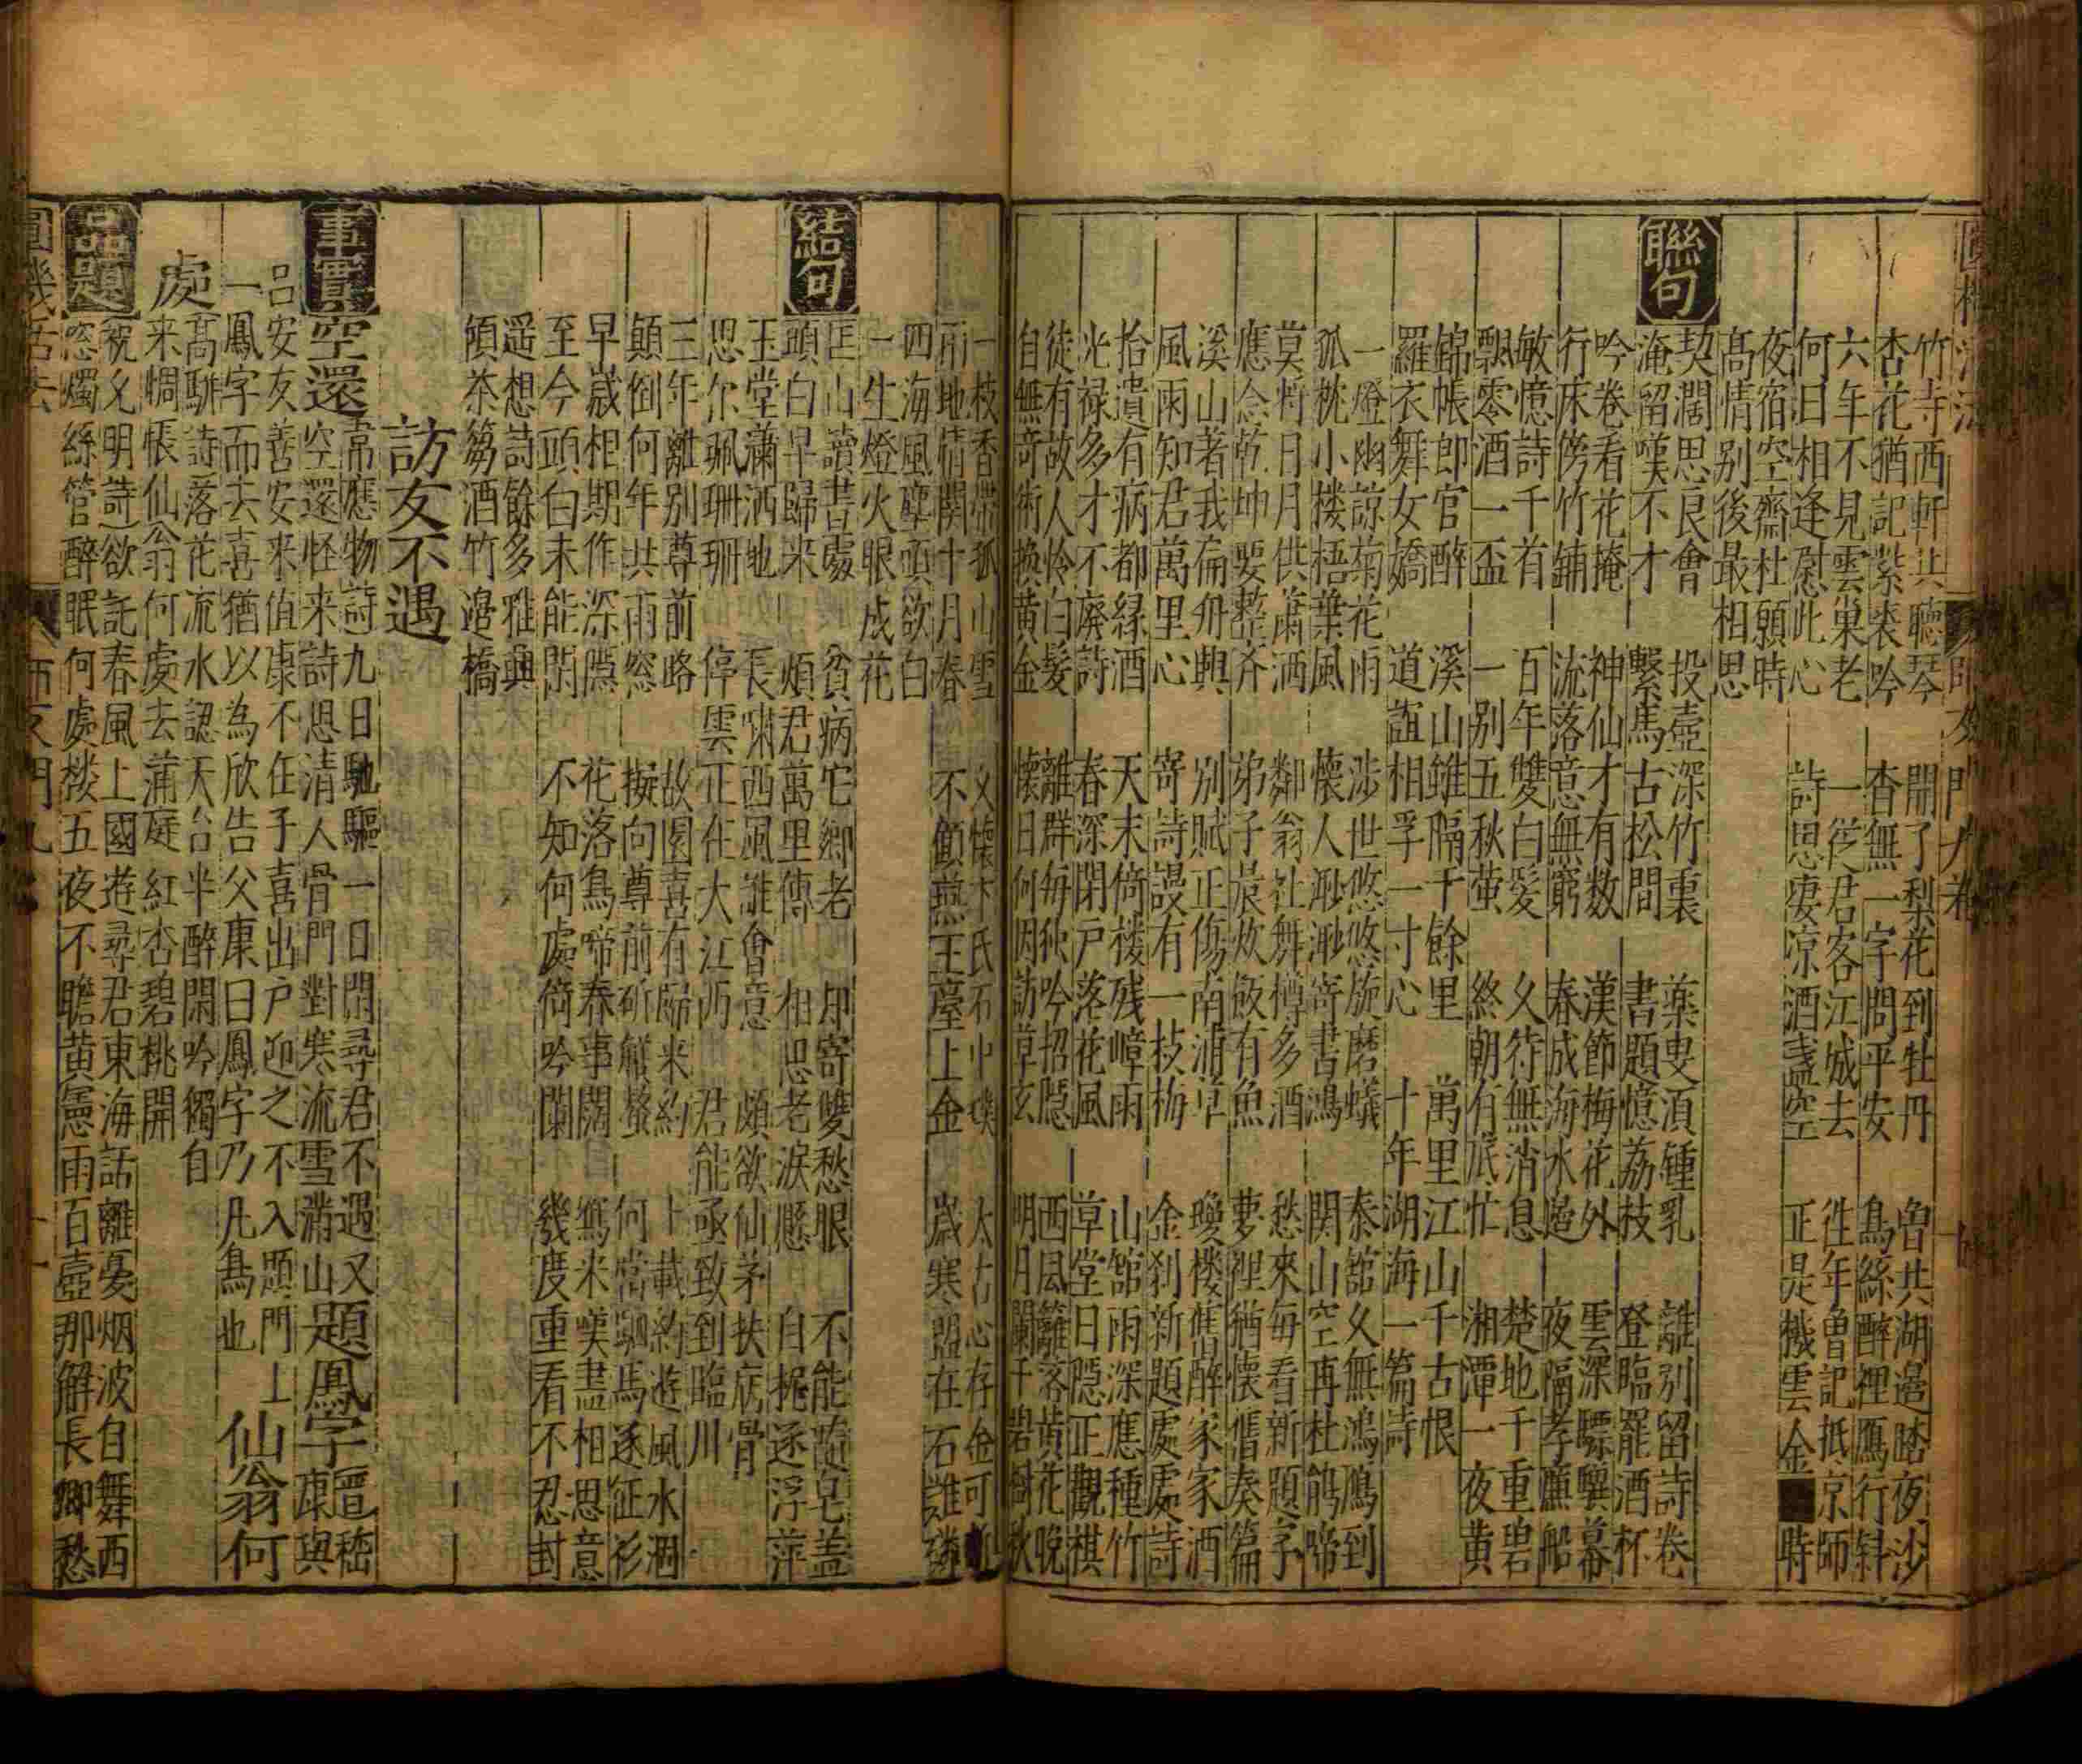 竹寺西軒共聽琴 開了梨花到牡丹 曾共湖邉踏夜沙
杏花猶記紫裘吟 杳無一字問平安 烏絲醉裡鴈行斜
六年不見雲巢老 一從君客江城去 徃年曾記抵京師
何日相逢慰此心 詩思凄凉酒盞空 正是機雲金■時
夜宿空齋杜願時
髙情别後最相思
聯句
契濶思良會 投壺深竹裏 藥叟湏鍾乳 離别留詩卷
淹留嘆不才 繫馬古松間 書題憶荔枝 登臨罷酒杯
吟卷看花掩 神仙才有数 漢節梅花外 雲深驃驥幕
行床傍竹鋪 流落意無窮 春成海水邉 夜隔孝廉船
敏憶詩千有 百年雙白髮 久待無消息 楚地千重碧
飄零酒一盃 一别五秋螢 終朝有底忙 湘潭一夜黄
錦帳郎官醉 溪山雖隔千餘里 萬里江山千古恨
羅衣舞女嬌 道誼相孚一寸心 十年湖海一篇詩
一燈幽諒菊花雨 涉世悠悠旋磨蟻 泰舘久無鴻鴈到
孤枕小楼梧葉風 懷人渺渺寄書鴻 関山空再杜鵑啼
莫將日月供蕭洒 鄰翁社舞樽多酒 愁來每看新題字
應念乾坤要整齐 弟子晨炊飯有魚 夢裡猶懷舊奏篇
溪山著我扁舟興 别賦正傷南浦草 瓊楼舊醉家家酒
風雨知君萬里心 寄詩謾有一枝梅 金刹新題處處詩
拾遺有病都縁酒 天末倚楼残嶂雨 山舘雨深應種竹
光禄多才不廢詩 春深閉户落花風 草堂日隠正觀棋
徒有故人怜白髮 離群每 吟招隠 西風籬落黄花晚
自無奇術换黄金 懷日何因訪草玄 明月闌干碧樹秋
一枝香帶孤山雪 又懷 氏石中璞 太古心存金可
兩地情関十月春 不顧燕王臺上金 歳寒盟在石誰磷
四海風塵頭欲白
一生燈火眼成花
結句
匡山讀書處 貧病它鄉老 却寄雙愁眼 不能随皂盖
頭白早歸来 煩君萬里傳 相思老淚懸 自挽逐浮萍
玉堂瀟洒地 長嘯西風誰會意 頗欲仙茅扶病骨
思尔珮珊珊 停雲正在大江西 君能亟致到臨川
三年離别尊前路 故園喜有歸来約 卜載約遊風水涸
顛倒何年共雨窓 擬向尊前斫鮮螯 何當駟馬逐征衫
早歳相期作深隠 花落鳥啼春事闊 鴛 嘆盡相思意
至今頭白未能閑 不知何處倚吟闌 幾度重看不忍封
遥想詩餘多雅興
傾茶篘酒竹邉橋
訪友不遇
事實
空還 韋應物詩九日馳驅一日閑尋君不遇又
空還恠来詩思清人骨門對寒流雪滿山 題鳳字 嵇康與
吕安友善安来值康不在子喜出户迎之不入題門上
一鳳字而去喜猶以為欣告父康曰鳳字乃凡鳥也 仙翁何
處 髙駢詩落花流水認天台半醉閑吟獨自
来惆悵仙翁何處去蒲庭紅杏碧桃開
品題
祝允明詩欲託春風上國遊尋君東海話離憂烟波自舞西
窓燭絲管醉眠何處楼五夜不瞻黄憲雨百壺那解長卿愁